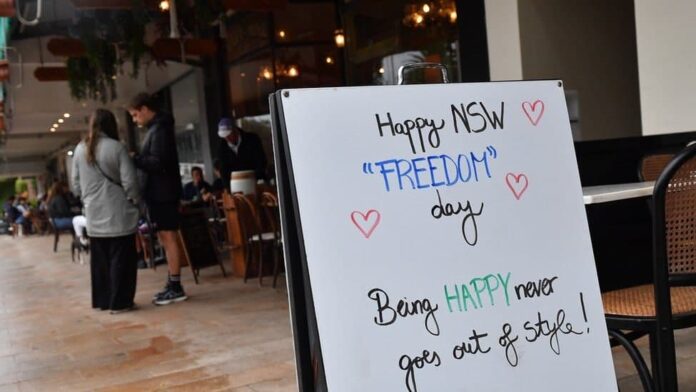 Happy NSW
"FREEDOM"
day
Being HAPPY never
goes out of style!